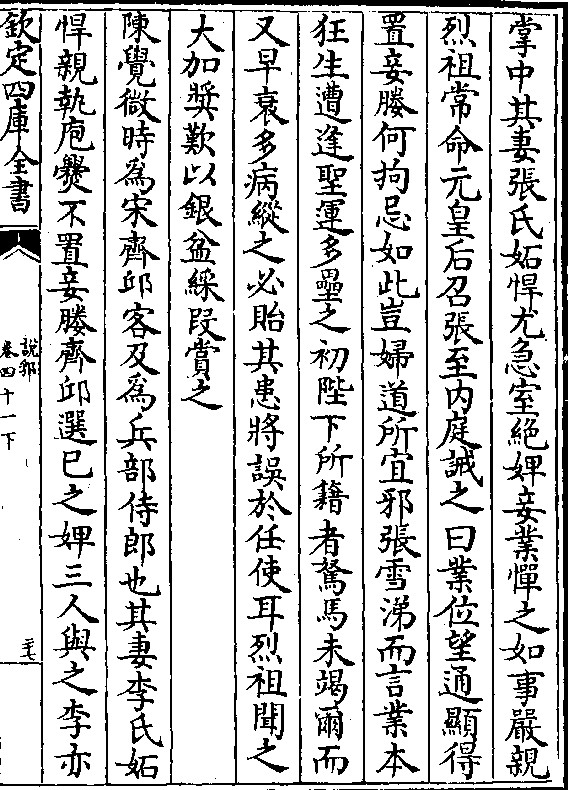 掌中其妻張氏妬悍尤急室絶婢妾業憚之如事嚴親
烈祖常命元皇后召張至内庭誡之曰業位望通顯得
置妾媵何拘忌如此豈婦道所宜邪張雪涕而言業本
狂生遭逢聖運多壘之初陛下所藉者駑馬未竭爾而
又早衰多病縱之必貽其患將誤於任使耳烈祖聞之
大加奬歎以銀盆綵段賞之
陳覺微時為宋齊邱客及為兵部侍郎也其妻李氏妬
悍親執庖爨不置妾媵齊邱選已之婢三人與之李亦
欽定四庫全書
說郛
卷四十一下